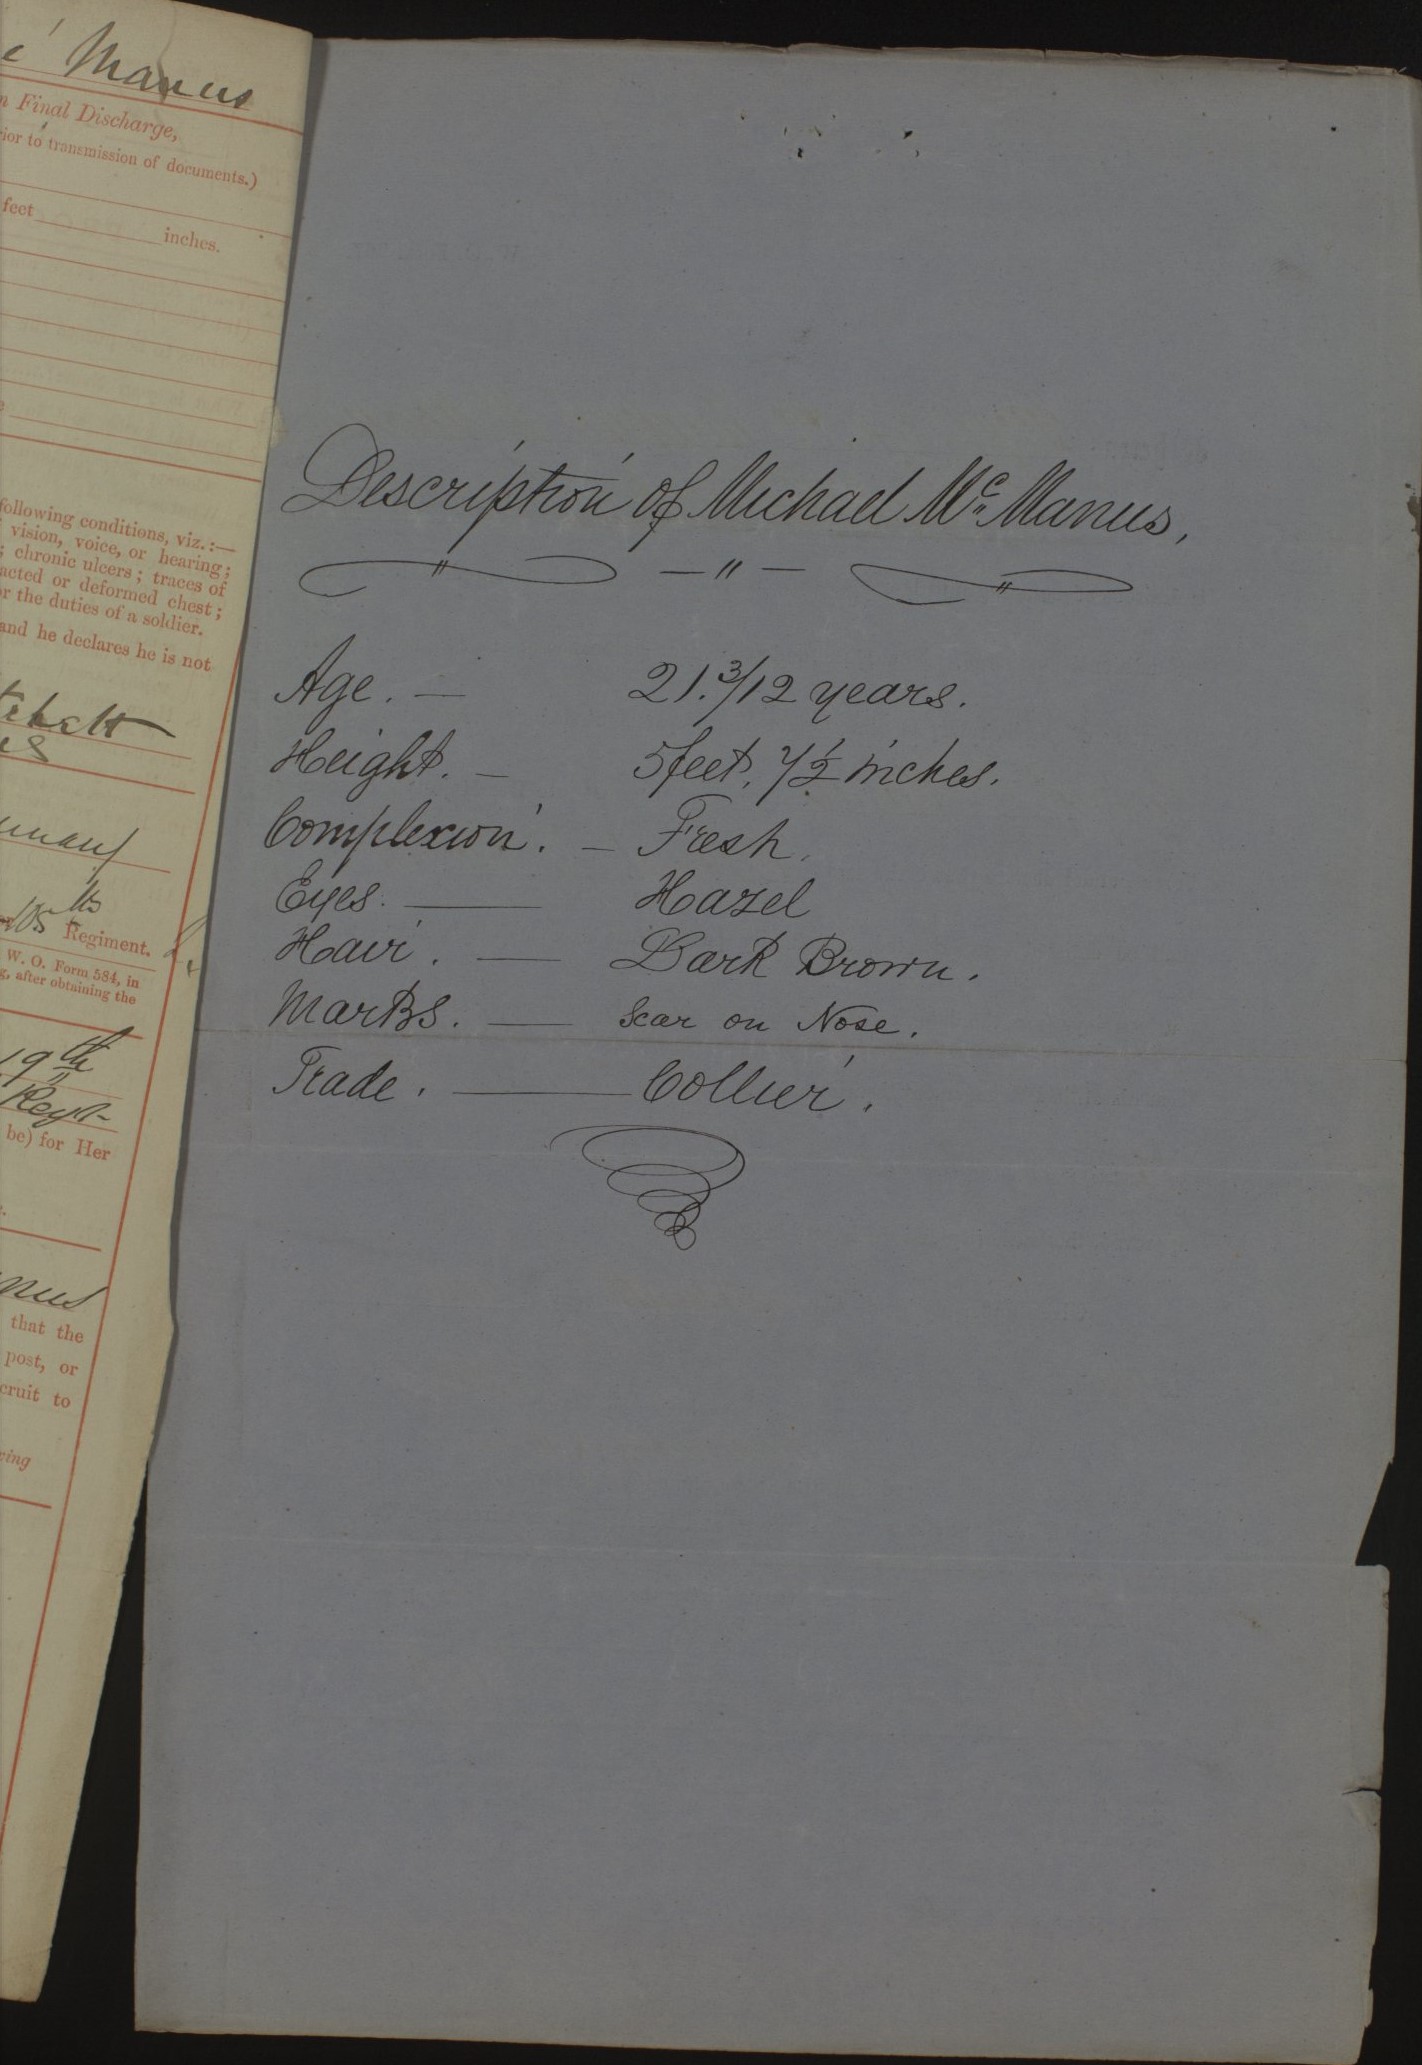 Manus
Final Discharge,
ior to transmission of documents.)
feet inches.
following conditions, viz.:—
vision, voice, or hearing;
; chronic ulcers; traces of
acted or deformed chest;
r the duties of a soldier.
and he declares he is not
Regiment.
W. O. Form 584, in
g, after obtaining the
19th
Regt
be) for Her
nus
that the
post, or
cruit to
ving
Description of Michael McManus,
— " —
Age. — 21.3/12 years.
Height. — 5 feet, 7½ inches.
Complexion. — Fresh.
Eyes. — Hazel
Hair. — Dark Brown.
Marks. — Scar on Nose.
Trade. — Collier.